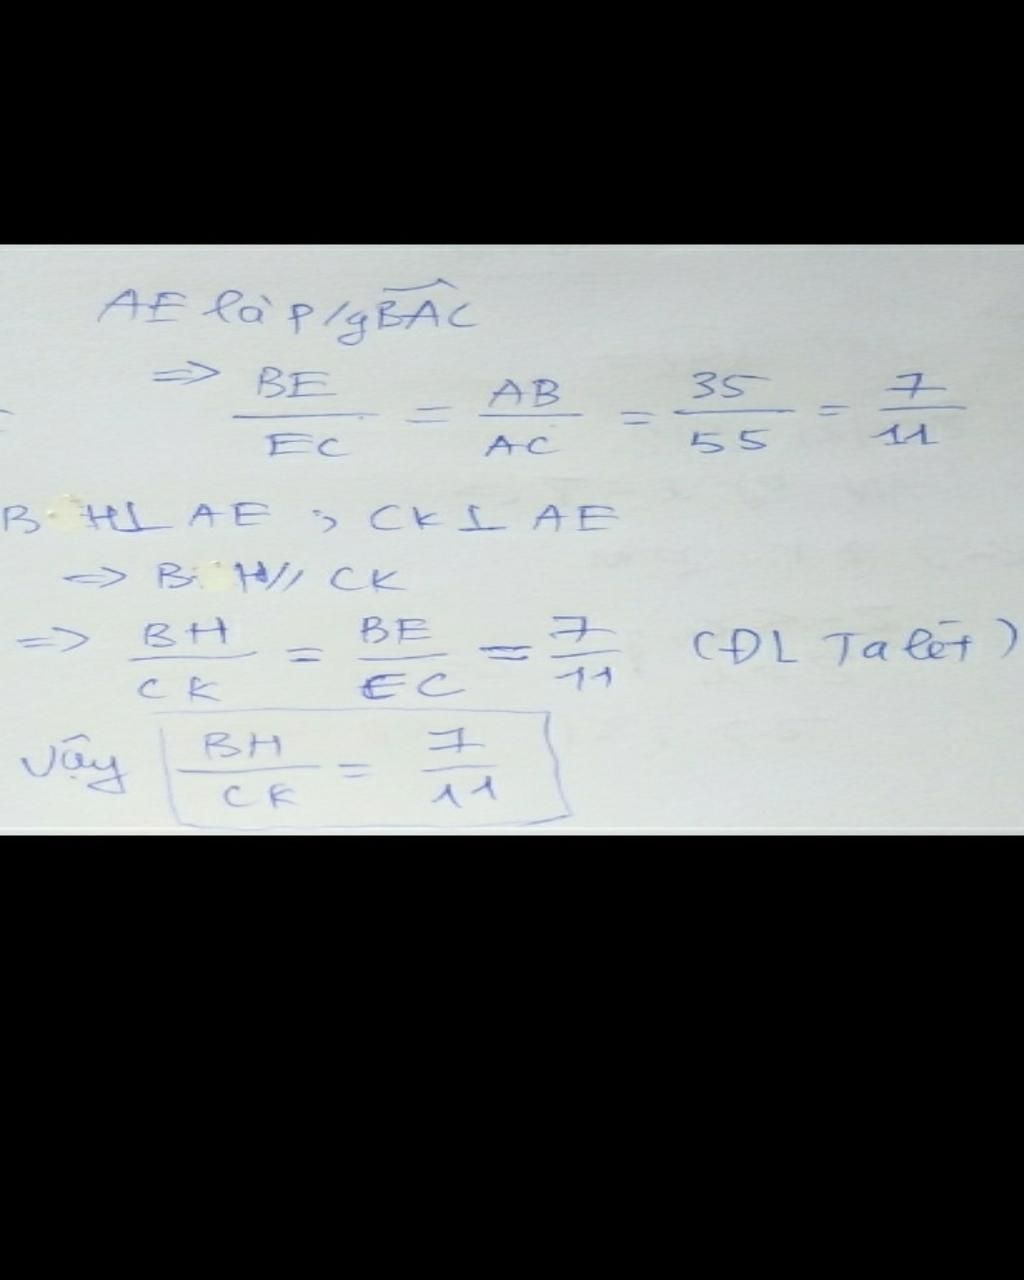 AE là p/g BAC
=> BE/EC = AB/AC = 35/55 = 7/11
BH ⊥ AE ; CK ⊥ AE
=> BH // CK
=> BH/CK = BE/EC = 7/11 (ĐL Talét)
Vậy BH/CK = 7/11